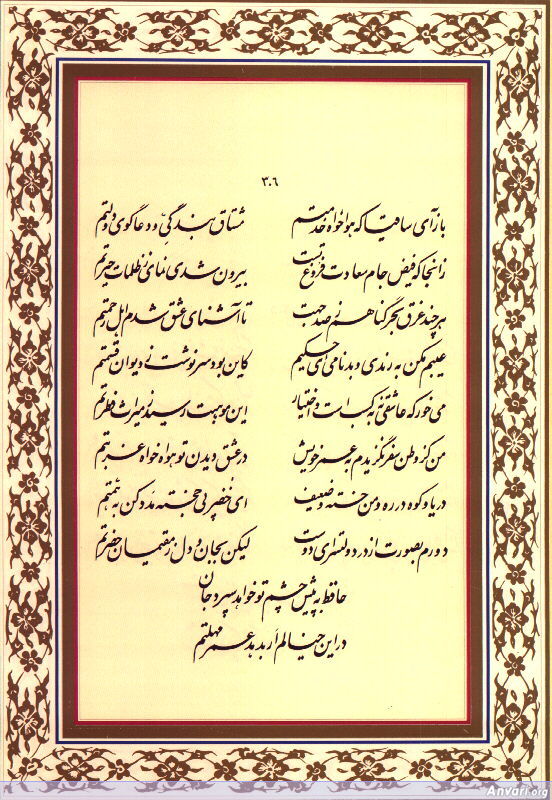 ۳۰۶
بازآی ساقیا که هواخواه خدمتم مشتاق بندگی و دعاگوی دولتم
زانجا که فیض جام سعادت فروغ تست بیرون شدی نمای ز ظلمات حیرتم
هر چند غرق بحر گناهم ز صد جهت تا آشنای عشق شدم ز اهل رحمتم
عیبم مکن به رندی و بدنامی ای حکیم کاین بود سرنوشت ز دیوان قسمتم
می خور که عاشقی نه به کسب است و اختیار این موهبت رسید ز میراث فطرتم
من کز وطن سفر نگزیدم به عمر خویش در عشق دیدن تو هواخواه غربتم
دریا و کوه در ره و من خسته و ضعیف ای خضر پی خجسته مدد کن به همتم
دورم بصورت از در دولتسرای دوست لیکن بجان و دل ز مقیمان حضرتم
حافظ به پیش چشم تو خواهد سپرد جان
در این خیالم ار بدهد عمر مهلتم
Anvari.org